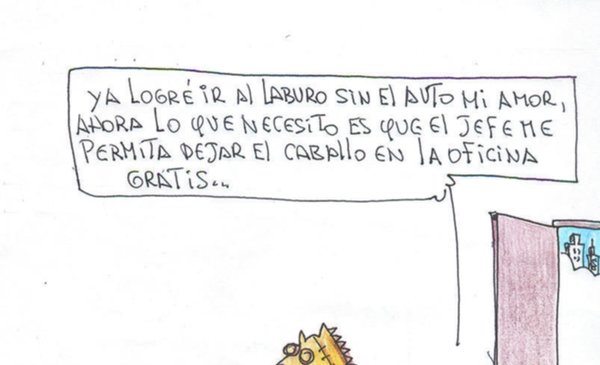 YA LOGRÉ IR AL LABURO SIN EL AUTO MI AMOR,
AHORA LO QUE NECESITO ES QUE EL JEFE ME
PERMITA DEJAR EL CABALLO EN LA OFICINA
GRATIS...